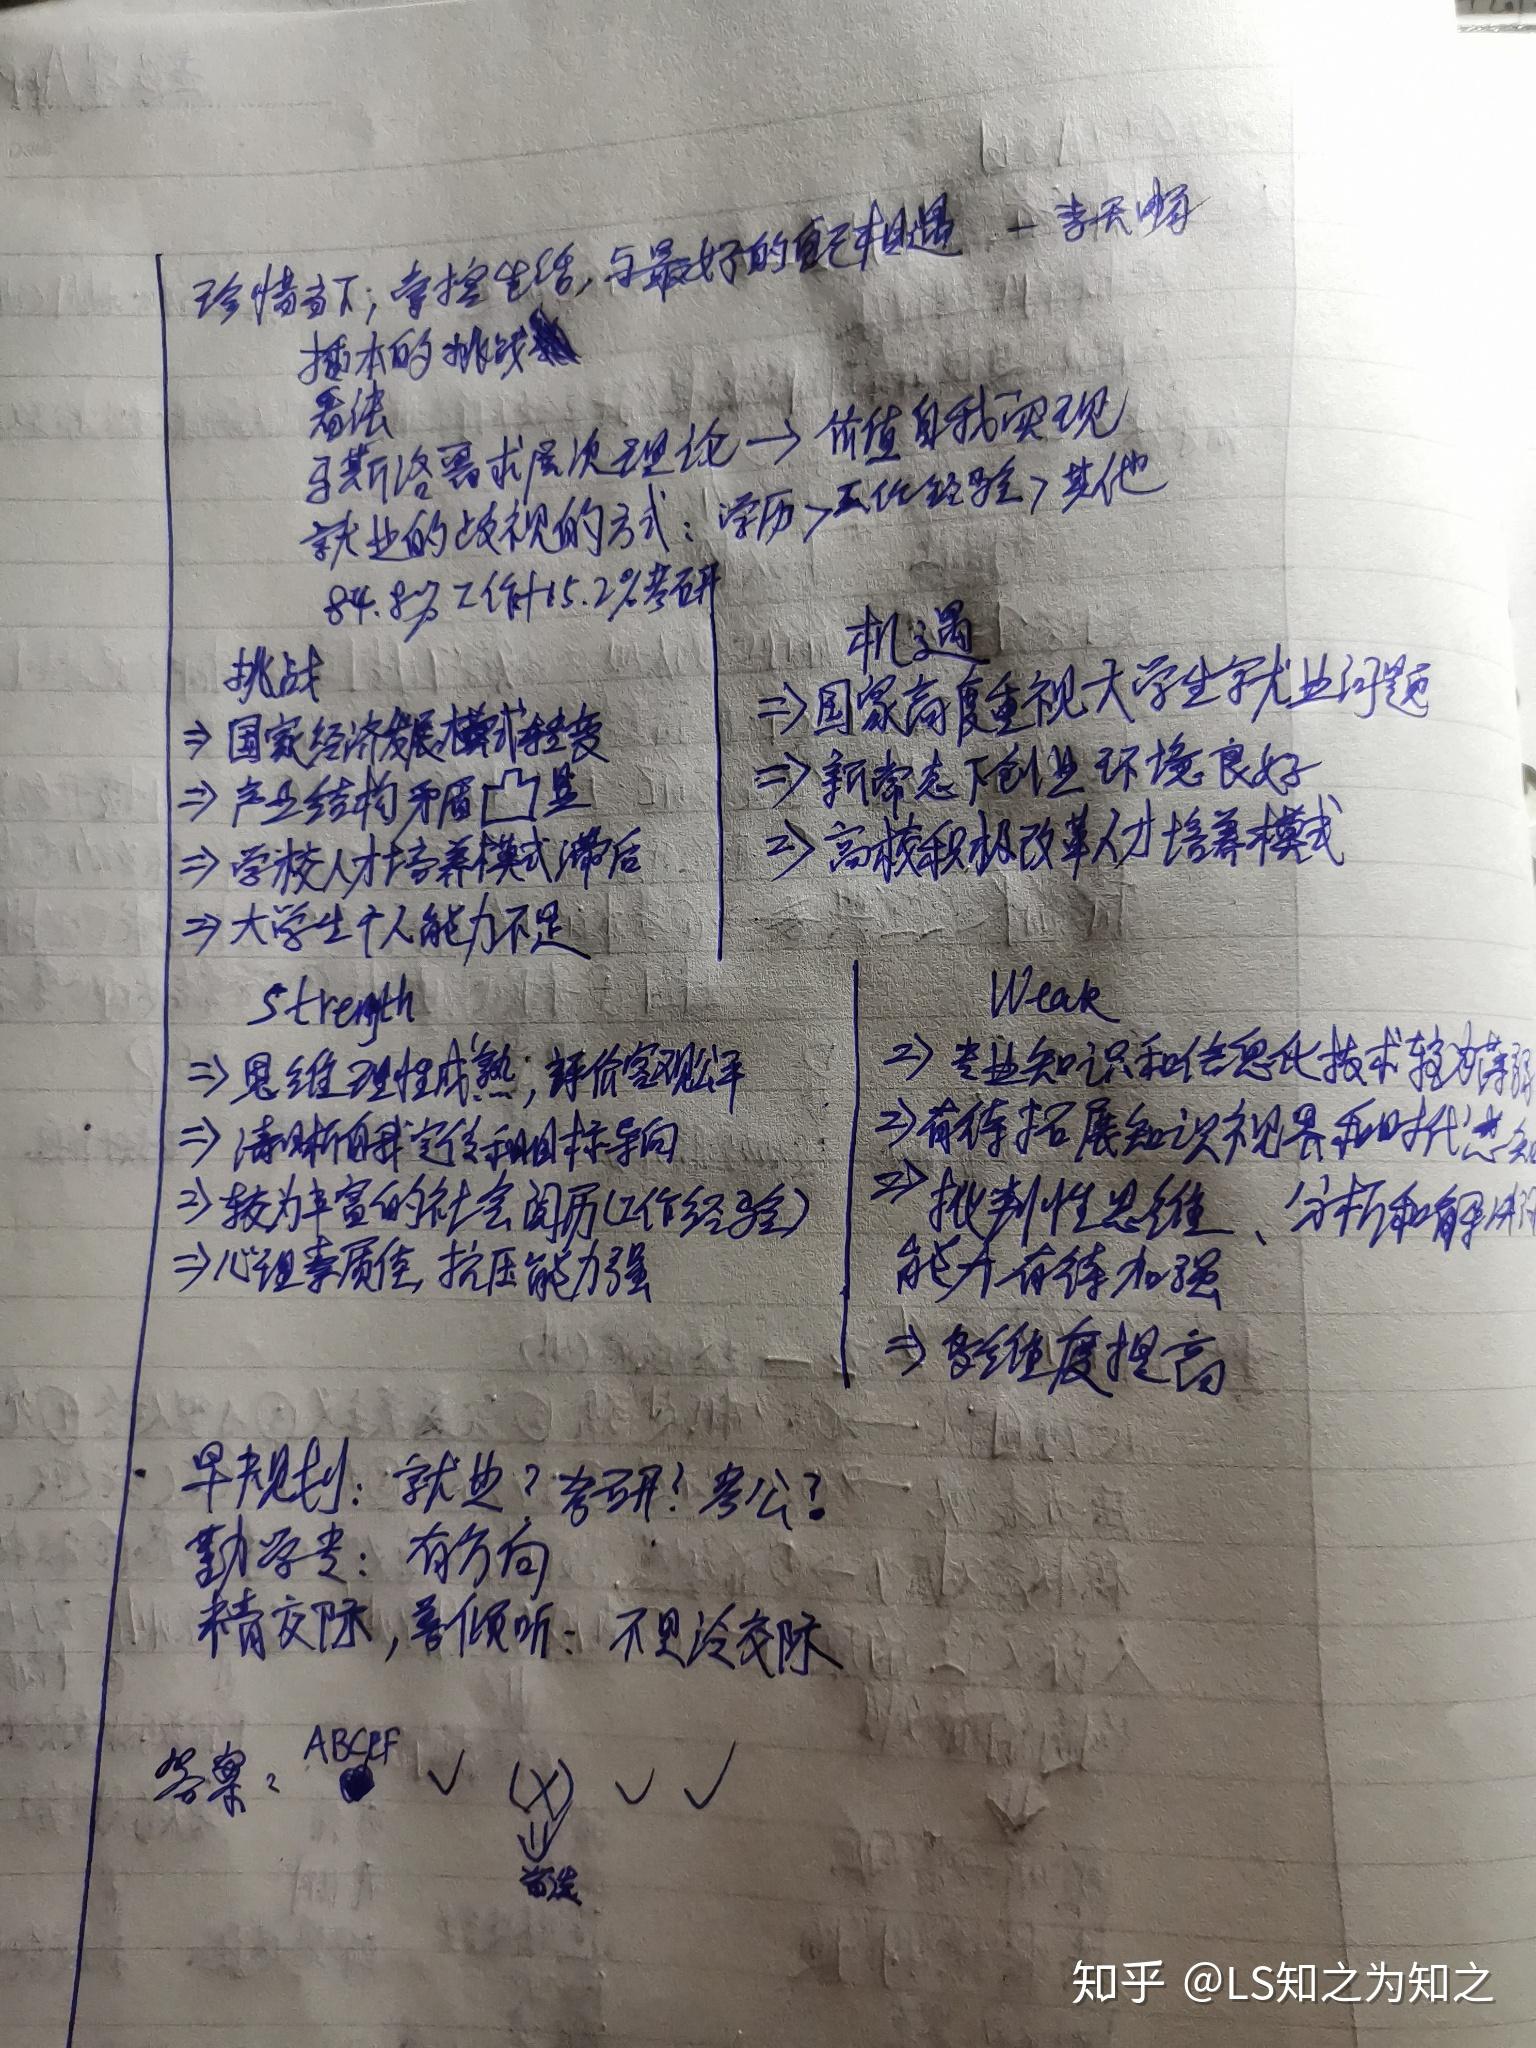 珍惜当下，掌控生活，与最好的自己相遇 —李天
插本的挑战
看法
马斯洛需求层次理论→价值自我实现
就业的歧视的方式：学历>工作经验>其他
84.8%工作+15.2%考研
挑战
⇒国家经济发展模式转变
⇒产业结构矛盾凸显
⇒学校人才培养模式滞后
⇒大学生个人能力不足
机遇
⇒国家高度重视大学生就业问题
⇒新常态下创业环境良好
⇒高校积极改革人才培养模式
Strength
⇒思维理性成熟，评价客观公平
⇒清晰自我定位和目标导向
⇒较为丰富的社会阅历(工作经验)
⇒心理素质佳，抗压能力强
Weak
⇒专业知识和信息化技术较为薄弱
⇒有待拓展知识视界和时代
⇒批判性思维、分析和解决
能力有待加强
⇒多维度提高
早规划：就业？考研？考公？
勤学考：有方向
精交际，善倾听：不是冷交际
答案： ABCEF ✓ (X) ✓ ✓
知乎 @LS知之为知之